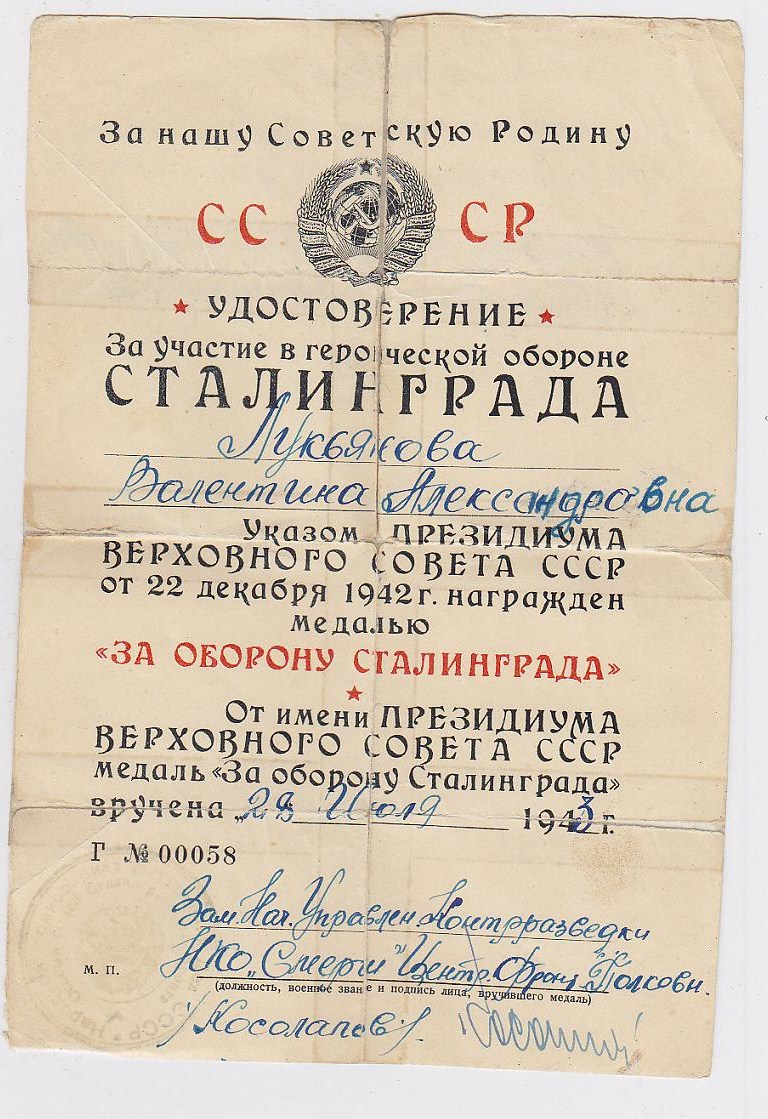 За нашу Советскую Родину
СССР
УДОСТОВЕРЕНИЕ
За участие в героической обороне
СТАЛИНГРАДА
Лукьянова
Валентина Александровна
Указом ПРЕЗИДИУМА
ВЕРХОВНОГО СОВЕТА СССР
от 22 декабря 1942 г. награжден
медалью
«ЗА ОБОРОНУ СТАЛИНГРАДА»
От имени ПРЕЗИДИУМА
ВЕРХОВНОГО СОВЕТА СССР
медаль «За оборону Сталинграда»
вручена „28 Июля 1943 г.
Г № 00058
Зам. Нач. Управлен. Контрразведки
НКО „Смерш" Центр. Фронт. Полковн.
м. п.
(должность, военное звание и подпись лица, вручившего медаль)
/Косолапов/
СССР